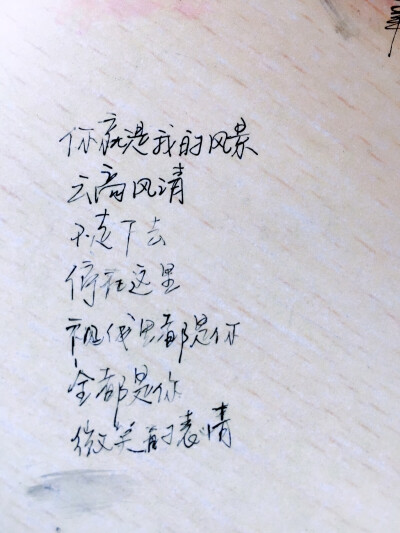 你就是我的风景
云高风清
不走下去
停在这里
视线里都是你
全都是你
微笑的表情